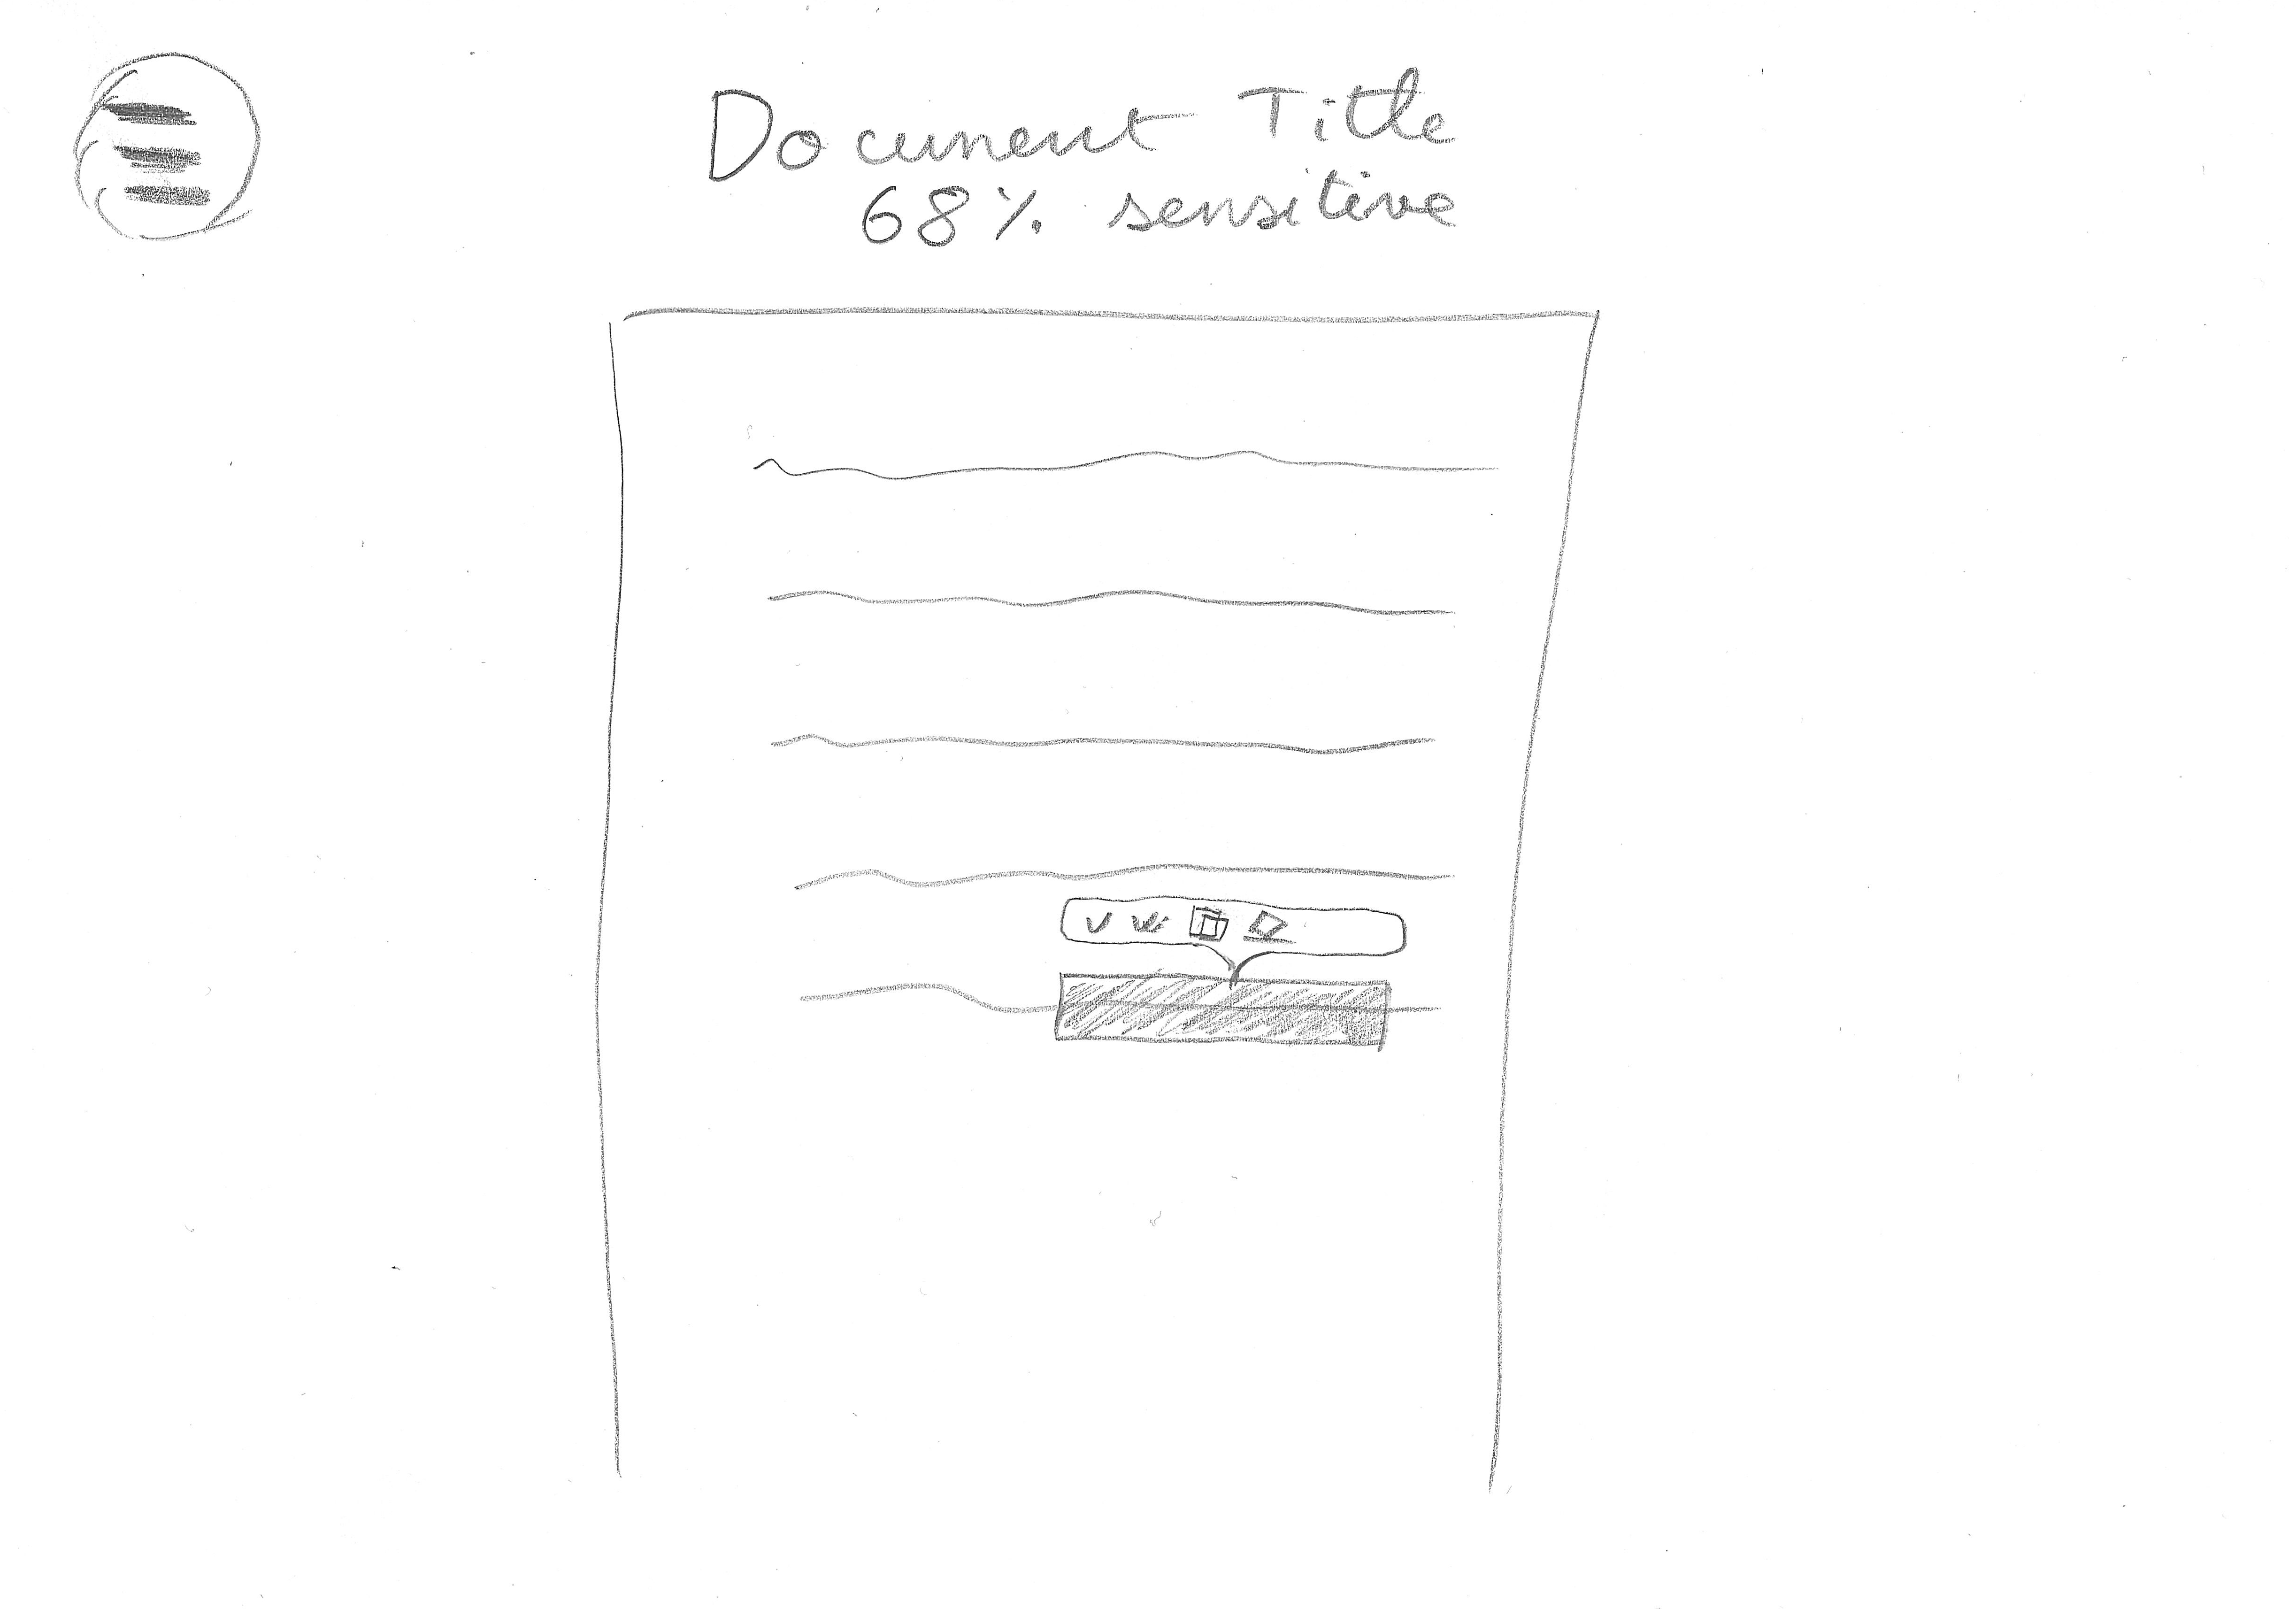 Document Title
68% sensitive